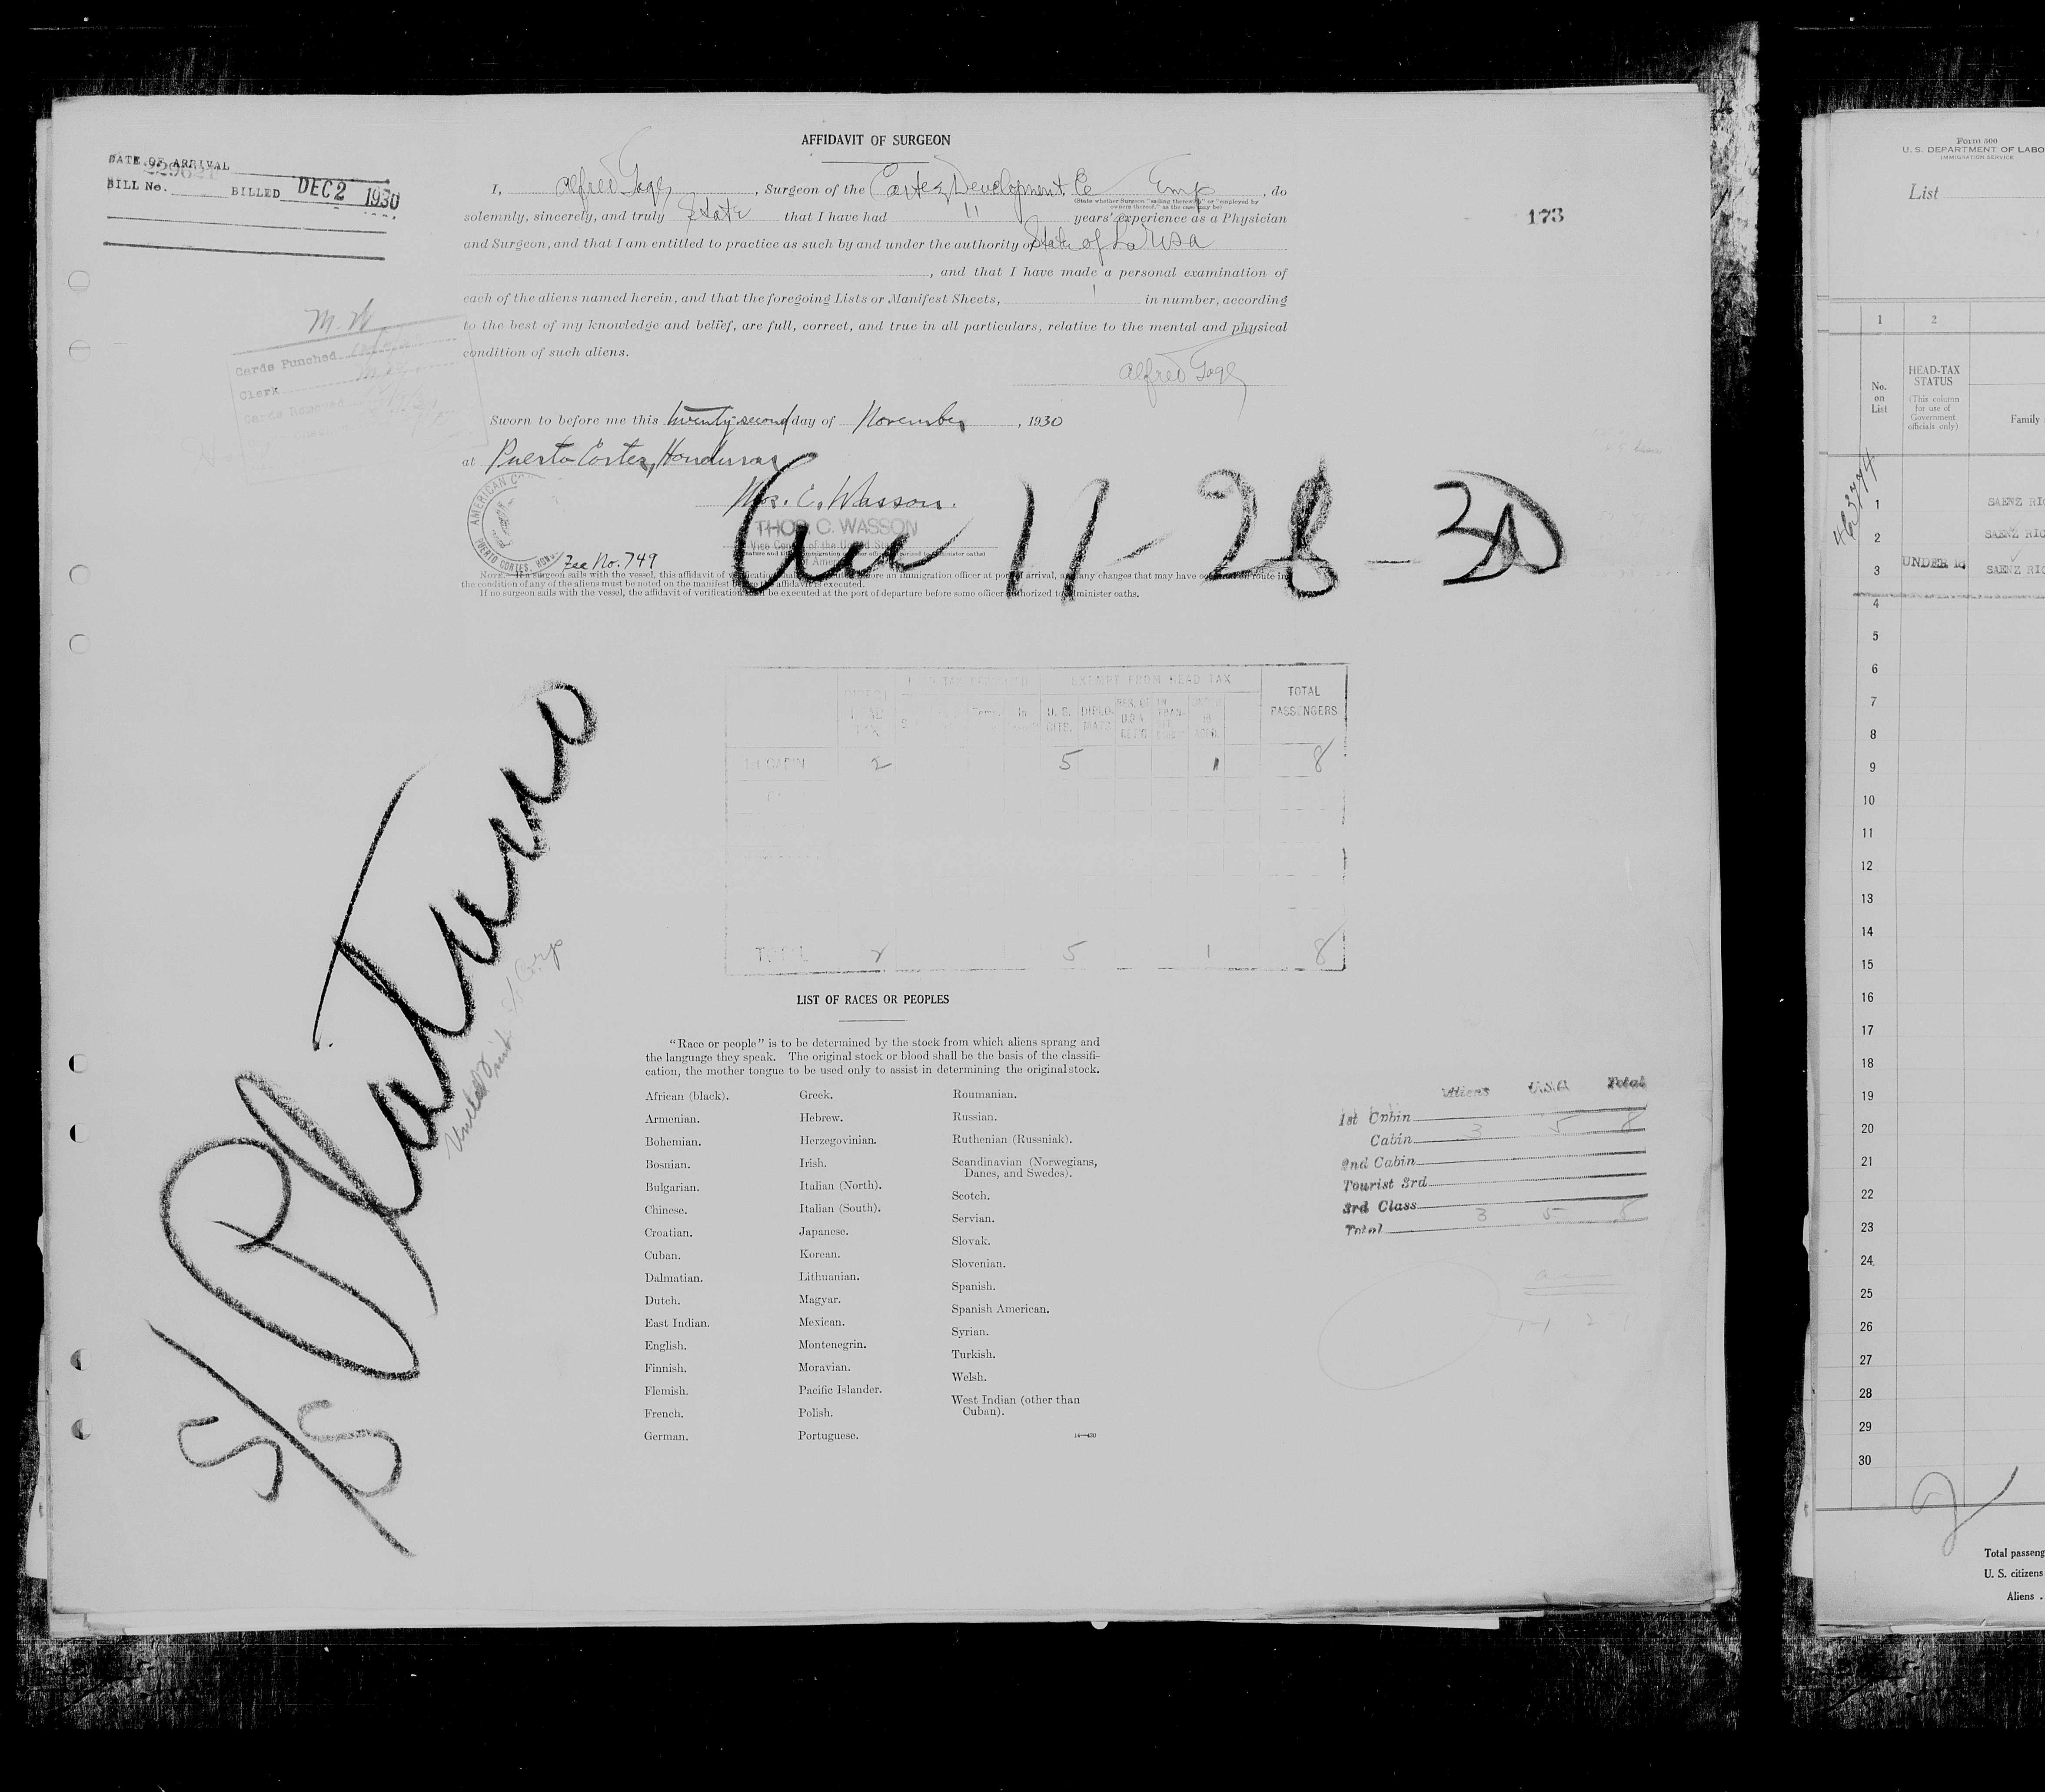 AFFIDAVIT OF SURGEON
DATE OF ARRIVAL
229621
BILL No. BILLED DEC 2 1930
173
I, Alfred , Surgeon of the Cortez Development Co Emp , do
(State whether Surgeon "sailing therewith" or "employed by
owners thereof," as the case may be)
solemnly, sincerely, and truly State that I have had 11 years' experience as a Physician
and Surgeon, and that I am entitled to practice as such by and under the authority of State of La USA
, and that I have made a personal examination of
each of the aliens named herein, and that the foregoing Lists or Manifest Sheets, 1 in number, according
to the best of my knowledge and belief, are full, correct, and true in all particulars, relative to the mental and physical
condition of such aliens.
Alfred
M.W.
Cards Punched
Clerk
Cards Removed
Sworn to before me this twenty-second day of November , 1930
at Puerto Cortes, Honduras
C. Wasson.
THOR C. WASSON
Vice Consul of the United States
of America
AMERICAN
PUERTO CORTES, HOND
Fee No. 749
Arr 11-28-30
NOTE.—If a surgeon sails with the vessel, this affidavit of verification shall be executed before an immigration officer at port of arrival, and any changes that may have occurred en route in
the condition of any of the aliens must be noted on the manifest before the affidavit is executed.
If no surgeon sails with the vessel, the affidavit of verification shall be executed at the port of departure before some officer authorized to administer oaths.
EXEMPT FROM HEAD TAX
TOTAL PASSENGERS
U. S. CITS.
DIPLO-MATS
1st CABIN 2 5 1 8
TOTAL 2 5 1 8
S/S Platano
United Fruit S/S Corp
LIST OF RACES OR PEOPLES
"Race or people" is to be determined by the stock from which aliens sprang and
the language they speak. The original stock or blood shall be the basis of the classifi-
cation, the mother tongue to be used only to assist in determining the original stock.
African (black).
Armenian.
Bohemian.
Bosnian.
Bulgarian.
Chinese.
Croatian.
Cuban.
Dalmatian.
Dutch.
East Indian.
English.
Finnish.
Flemish.
French.
German.
Greek.
Hebrew.
Herzegovinian.
Irish.
Italian (North).
Italian (South).
Japanese.
Korean.
Lithuanian.
Magyar.
Mexican.
Montenegrin.
Moravian.
Pacific Islander.
Polish.
Portuguese.
Roumanian.
Russian.
Ruthenian (Russniak).
Scandinavian (Norwegians,
Danes, and Swedes).
Scotch.
Servian.
Slovak.
Slovenian.
Spanish.
Spanish American.
Syrian.
Turkish.
Welsh.
West Indian (other than
Cuban).
14—430
Aliens U.S.A Total
1st Cabin
Cabin 3 5 8
2nd Cabin
Tourist 3rd
3rd Class
Total 3 5 8
Form 500
U. S. DEPARTMENT OF LABO
IMMIGRATION SERVICE
List
1 2
No.
on
List
HEAD-TAX
STATUS
(This column
for use of
Government
officials only)
Family
1 SAENZ RIC
2 SAENZ RIC
3 UNDER 16 SAENZ RIC
4
5
6
7
8
9
10
11
12
13
14
15
16
17
18
19
20
21
22
23
24
25
26
27
28
29
30
2
Total passeng
U. S. citizens
Aliens .